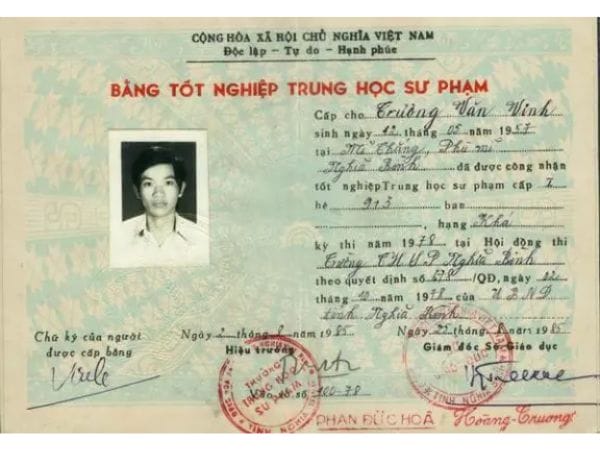 CỘNG HÒA XÃ HỘI CHỦ NGHĨA VIỆT NAM
Độc lập - Tự do - Hạnh phúc
BẰNG TỐT NGHIỆP TRUNG HỌC SƯ PHẠM
Cấp cho Trương Văn Vinh
sinh ngày 12 tháng 05 năm 1957
tại Mỹ Thắng, Phù mỹ
Nghĩa Bình đã được công nhận
tốt nghiệp Trung học sư phạm cấp I
hệ 9+3 ban
, hạng Khá
kỳ thi năm 1978 tại Hội đồng thi
Trường T.H.S.P Nghĩa Bình
theo quyết định số 678/QĐ, ngày 02
tháng 10 năm 1978 của U.B.N.D
tỉnh Nghĩa Bình
Chữ ký của người
được cấp bằng
Ngày 2 tháng 8 năm 1985
Hiệu trưởng
Ngày 22 tháng 8 năm 1985
Giám đốc Sở Giáo dục
TRƯỜNG
TRUNG HỌC
SƯ PHẠM
số 100-78
PHAN ĐỨC HOÁ
Hoàng-Trương